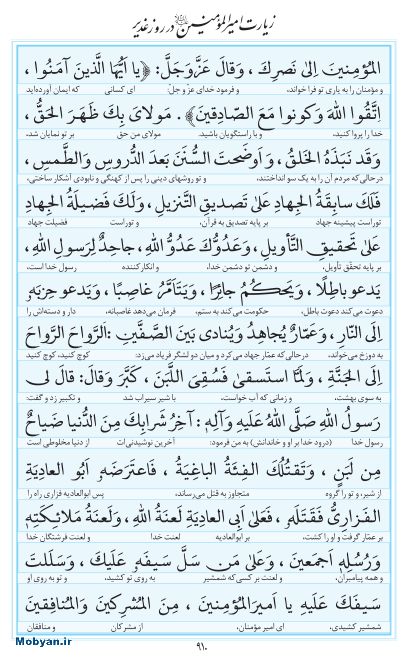 زیارت امیرالمؤمنین علیه‌السلام در روز غدیر
الْمُؤْمِنينَ اِلىٰ نَصْرِكَ ، وَقالَ عَزَّوَجَلَّ: ﴿يا اَيُّهَا الَّذينَ آمَنُوا ،
و مؤمنان را به یاری تو فرا خواند، و فرمود خدای عزّ و جلّ: ای کسانی که ایمان آورده‌اید
اِتَّقُوا اللّٰهَ وَكُونُوا مَعَ الصّادِقينَ﴾ . مَوْلايَ بِكَ ظَهَرَ الْحَقُّ ،
خدا را پروا کنید، و با راستگویان باشید. مولای من حق بر تو نمایان شد،
وَقَدْ نَبَذَهُ الْخَلْقُ ، وَاَوْضَحْتَ السُّنَنَ بَعْدَ الدُّرُوسِ وَالطَّمْسِ ،
درحالی‌که مردم آن را به یک سو انداختند، و تو روشهای دینی را پس از کهنگی و نابودی آشکار ساختی،
فَلَكَ سابِقَةُ الْجِهادِ عَلىٰ تَصْديقِ التَّنْزيلِ ، وَلَكَ فَضيلَةُ الْجِهادِ
توراست پیشینه جهاد بر پایه تصدیق به قرآن، و توراست فضیلت جهاد
عَلىٰ تَحْقيقِ التَّأْويلِ ، وَعَدُوُّكَ عَدُوُّ اللّٰهِ ، جاحِدٌ لِرَسُولِ اللّٰهِ ،
بر پایه تحقّق تأویل، و دشمن تو دشمن خدا، و انکارکننده رسول خدا است،
يَدْعُو باطِلًا ، وَيَحْكُمُ جائِرًا ، وَيَتَأَمَّرُ غاصِبًا ، وَيَدْعُو حِزْبَهُ
دعوت می‌کند دعوت باطل، حکومت می‌کند به ستم، فرمان می‌دهد غاصبانه، دار و دسته‌اش را
اِلَى النّارِ ، وَعَمّارٌ يُجاهِدُ وَيُنادي بَيْنَ الصَّفَّيْنِ :اَلرَّواحَ الرَّواحَ
به دوزخ می‌خواند، درحالی‌که عمّار جهاد می‌کرد و میان دو لشگر فریاد می‌زد: کوچ کنید، کوچ کنید
اِلَى الْجَنَّةِ ، وَلَمَّا اسْتَسْقىٰ فَسُقِيَ اللَّبَنَ ، كَبَّرَ وَقالَ: قالَ لي
به سوی بهشت، و زمانی که آب خواست، با شیر سیراب شد و تکبیر زد و گفت:
رَسُولُ اللّٰهِ صَلَّى اللّٰهُ عَلَيْهِ وَآلِهِ :آخِرُ شَرابِكَ مِنَ الدُّنْيا ضَياحٌ
رسول خدا (درود خدا بر او و خاندانش) به من فرمود: آخرین نوشیدنی‌ات از دنیا مخلوطی است
مِنْ لَبَنٍ ، وَتَقْتُلُكَ الْفِئَةُ الْباغِيَةُ ، فَاعْتَرَضَهُ اَبُو الْعادِيَةِ
از شیر، و تو را گروه متجاوز به قتل می‌رساند، پس ابوالعادیه فزاری راه را
الْفَزارِيُّ فَقَتَلَهُ ، فَعَلىٰ اَبِي الْعادِيَةِ لَعْنَةُ اللّٰهِ ، وَلَعْنَةُ مَلائِكَتِهِ
بر عمّار گرفت و او را کشت، بر ابوالعادیه لعنت خدا و لعنت فرشتگان خدا
وَرُسُلِهِ اَجْمَعينَ ، وَعَلىٰ مَنْ سَلَّ سَيْفَهُ عَلَيْكَ ، وَسَلَلْتَ
و همه پیامبران، و لعنت بر کسی که شمشیر به روی تو کشید، و تو به روی او
سَيْفَكَ عَلَيْهِ يا اَميرَالْمُؤْمِنينَ ، مِنَ الْمُشْرِكينَ وَالْمُنافِقينَ
شمشیر کشیدی، ای امیر مؤمنان، از مشرکان و منافقان
۹۱۰
Mobyan.ir